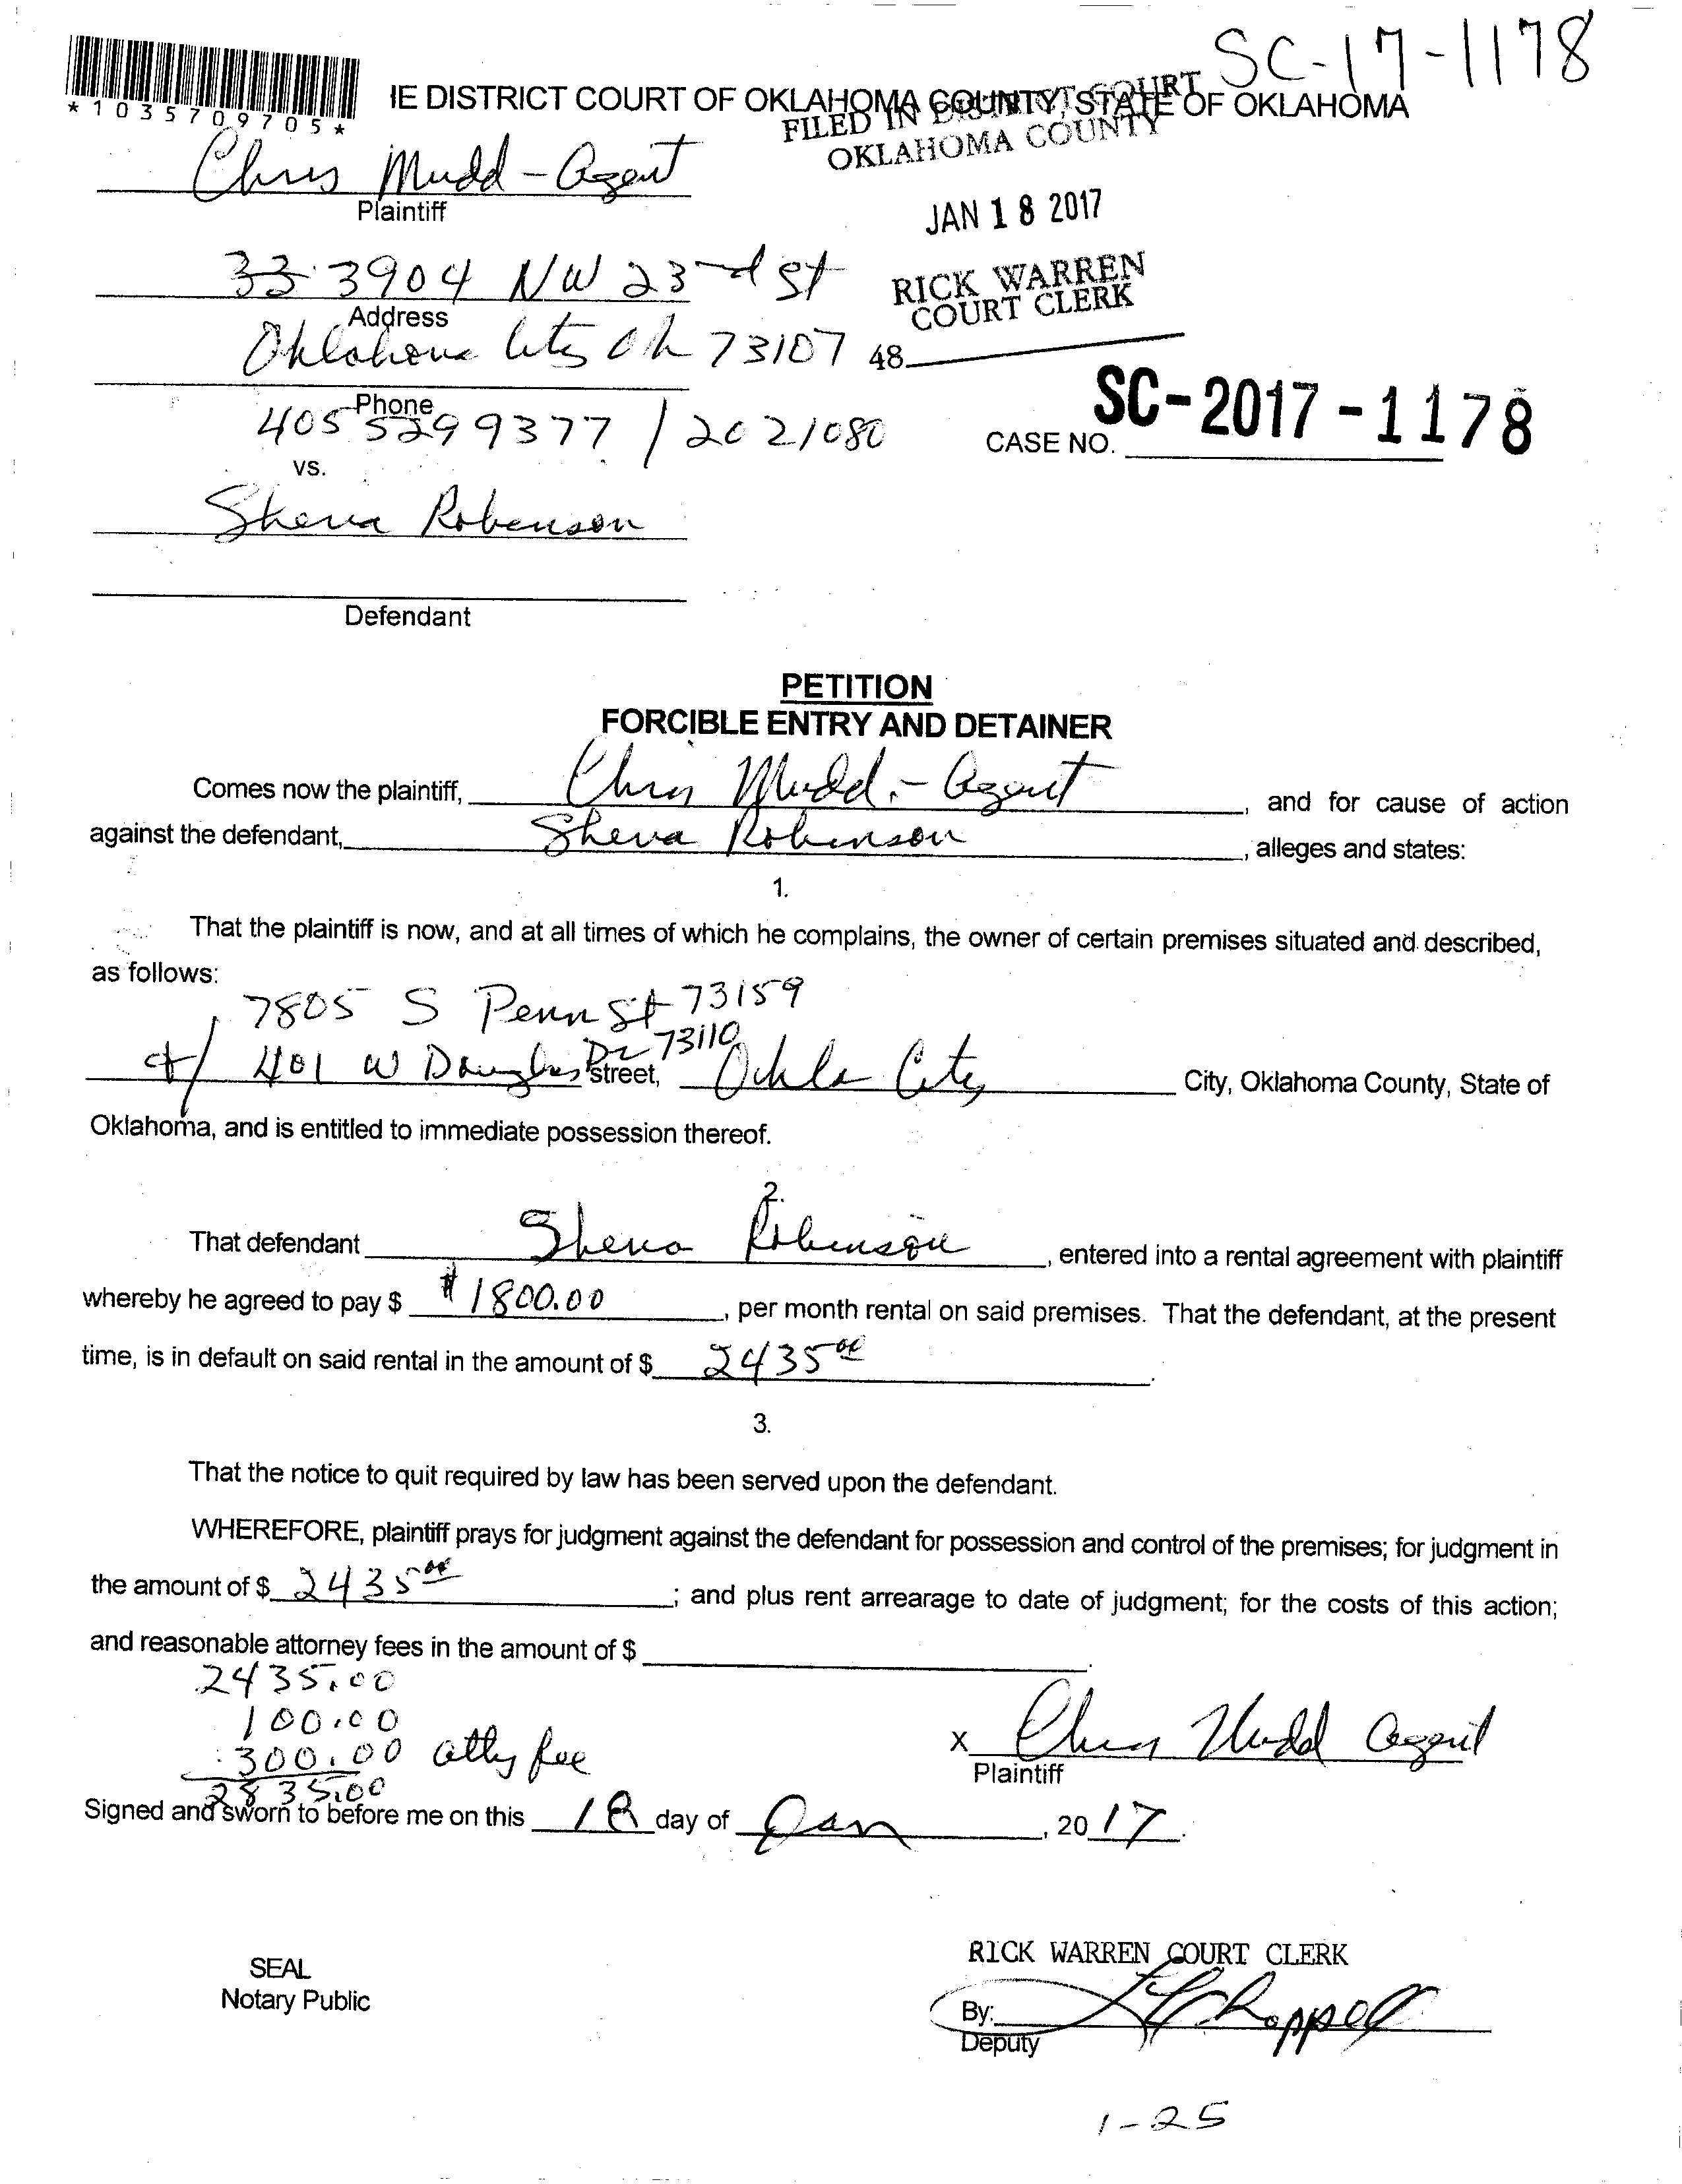 SC-17-1178
*1035709705*
IE DISTRICT COURT OF OKLAHOMA COUNTY, STATE OF OKLAHOMA
FILED IN DISTRICT COURT
OKLAHOMA COUNTY
Chris Mudd - Agent
Plaintiff
JAN 18 2017
33 3904 NW 23rd St
Address
RICK WARREN
COURT CLERK
Oklahoma City Ok 73107
48
Phone
405 5299377 / 2021080
CASE NO. SC-2017-1178
vs.
Shena Robenson
Defendant
PETITION
FORCIBLE ENTRY AND DETAINER
Comes now the plaintiff, Chris Mudd - Agent, and for cause of action
against the defendant, Shena Robinson, alleges and states:
1.
That the plaintiff is now, and at all times of which he complains, the owner of certain premises situated and described,
as follows:
7805 S Penn St 73159
401 W Douglas Dr 73110 street, Okla City City, Oklahoma County, State of
Oklahoma, and is entitled to immediate possession thereof.
2.
That defendant Shena Robinson, entered into a rental agreement with plaintiff
whereby he agreed to pay $ $1800.00, per month rental on said premises. That the defendant, at the present
time, is in default on said rental in the amount of $ 2435 00.
3.
That the notice to quit required by law has been served upon the defendant.
WHEREFORE, plaintiff prays for judgment against the defendant for possession and control of the premises; for judgment in
the amount of $ 2435 00; and plus rent arrearage to date of judgment; for the costs of this action;
and reasonable attorney fees in the amount of $
2435.00
100.00
300.00 atty fee
2835.00
x Chris Mudd agent
Plaintiff
Signed and sworn to before me on this 18 day of Jan, 2017.
SEAL
Notary Public
RICK WARREN COURT CLERK
By: Chappell
Deputy
1-25